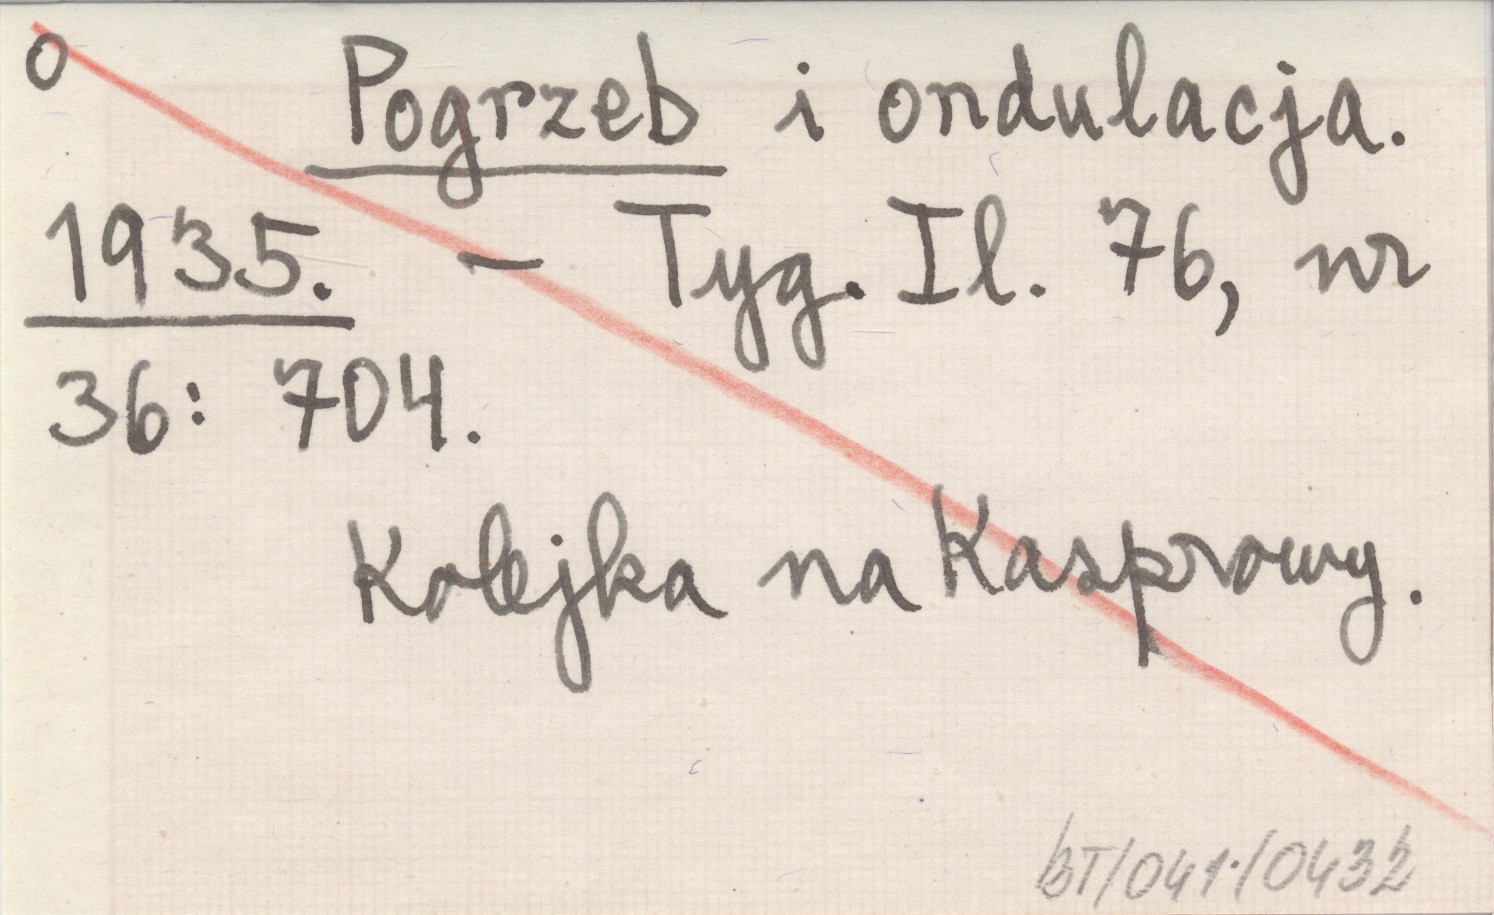 o Pogrzeb i ondulacja.
1935. – Tyg. Il. 76, nr
36: 704.
Kolejka na Kasprowy.
BT/041/0432